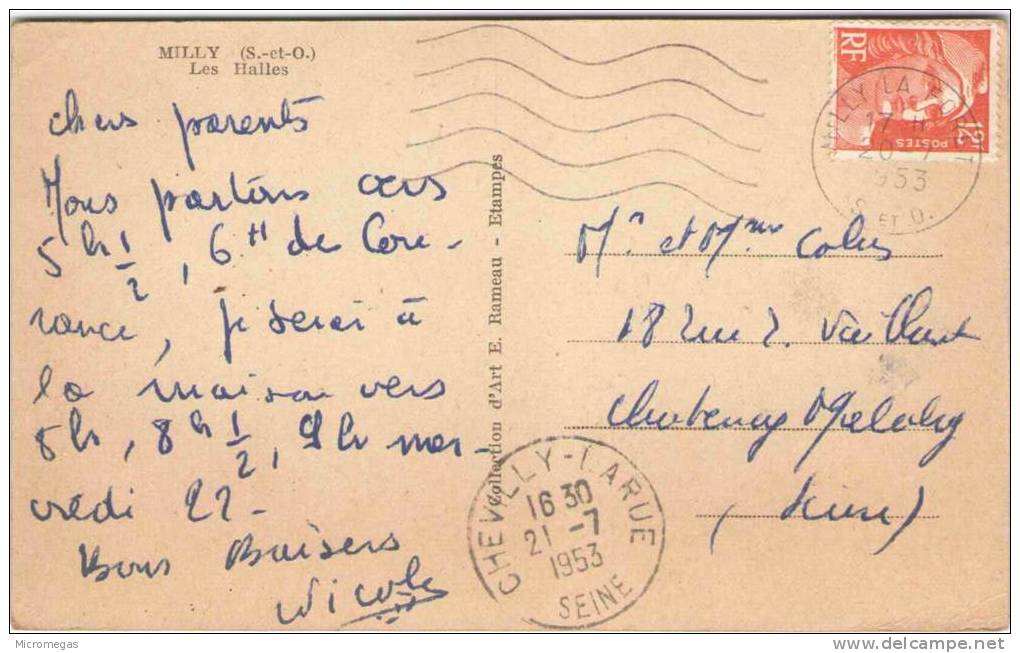 MILLY (S.-et-O.)
Les Halles
chers parents
Nous partons vers
5h 1/2, 6H de Cou-
rance, je serai à
la maison vers
8h, 8h 1/2, 9h mer-
credi 22-
Bons Baisers
Nicole
Collection d'Art E. Rameau - Etampes
RF
12F
POSTES
MILLY LA FORET
17 H
20 -7
1953
S. ET O.
Mr et Mme
18 rue E. Vaillant
Chatenay Malabry
(Seine)
CHEVILLY-LARUE
16 30
21 -7
1953
SEINE
Micromegas
www.delcampe.net